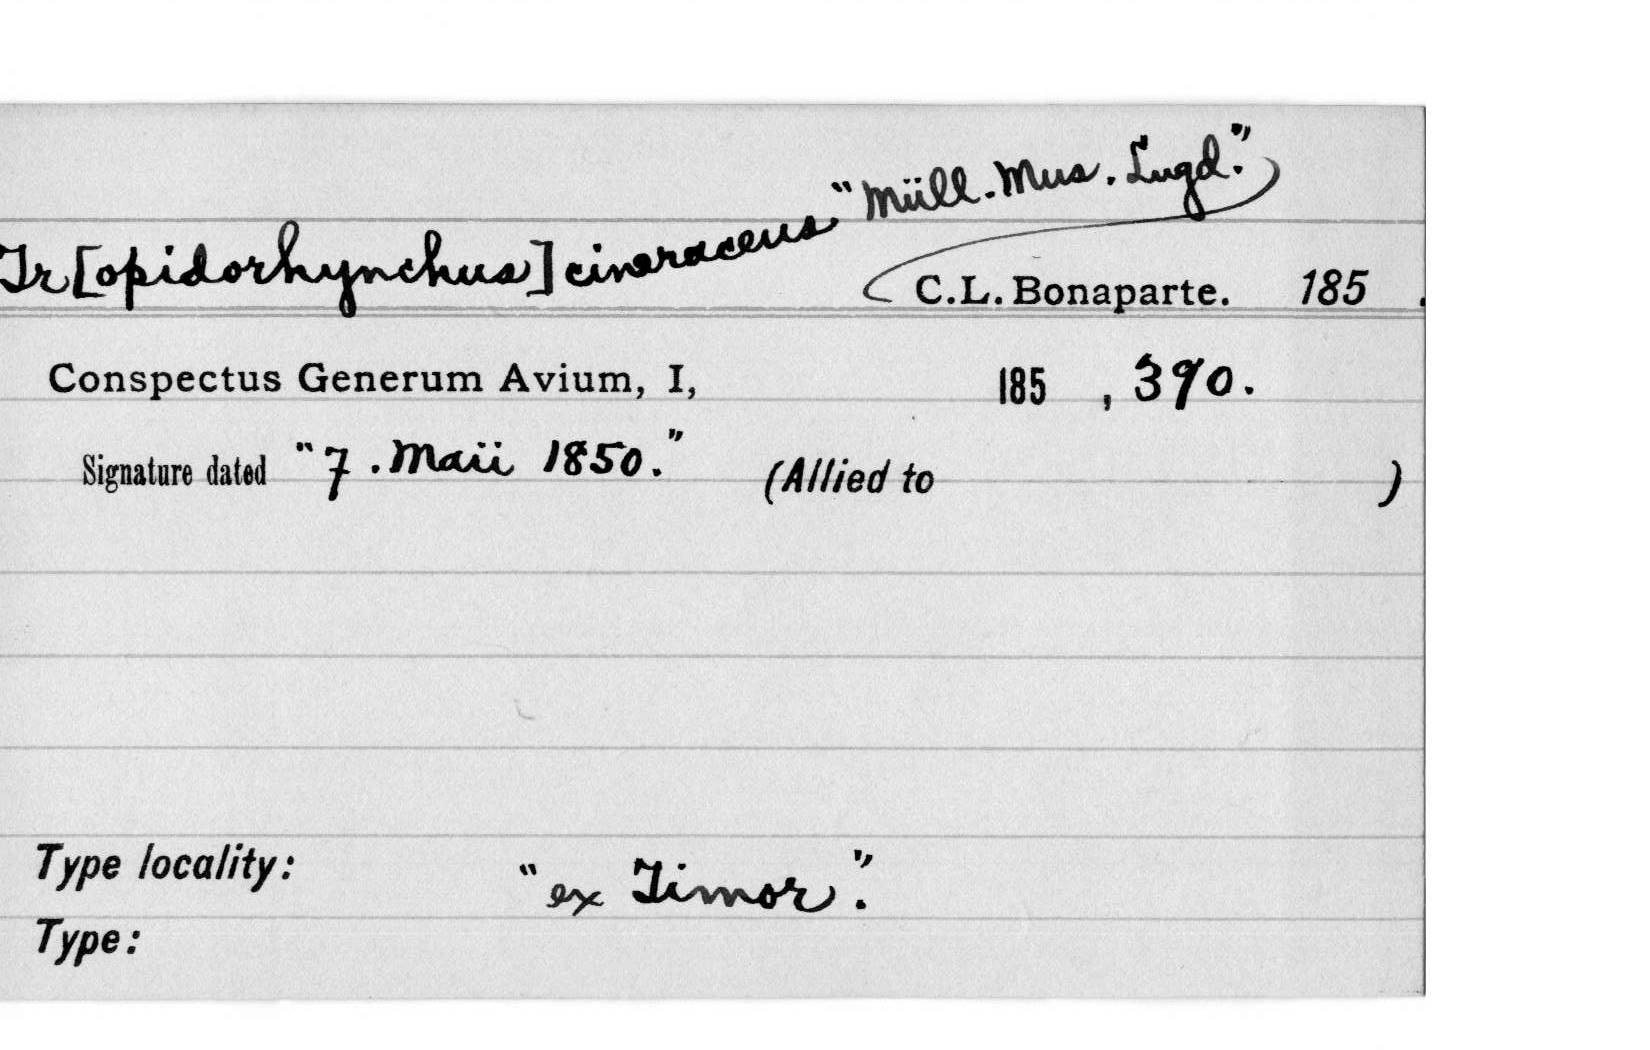 Tr[opidorhynchus] cineraceus "Müll. Mus. Lugd."
C.L. Bonaparte. 185 .
Conspectus Generum Avium, I, 185 , 390.
Signature dated "7. Maii 1850." (Allied to )
Type locality: "ex Timor."
Type: